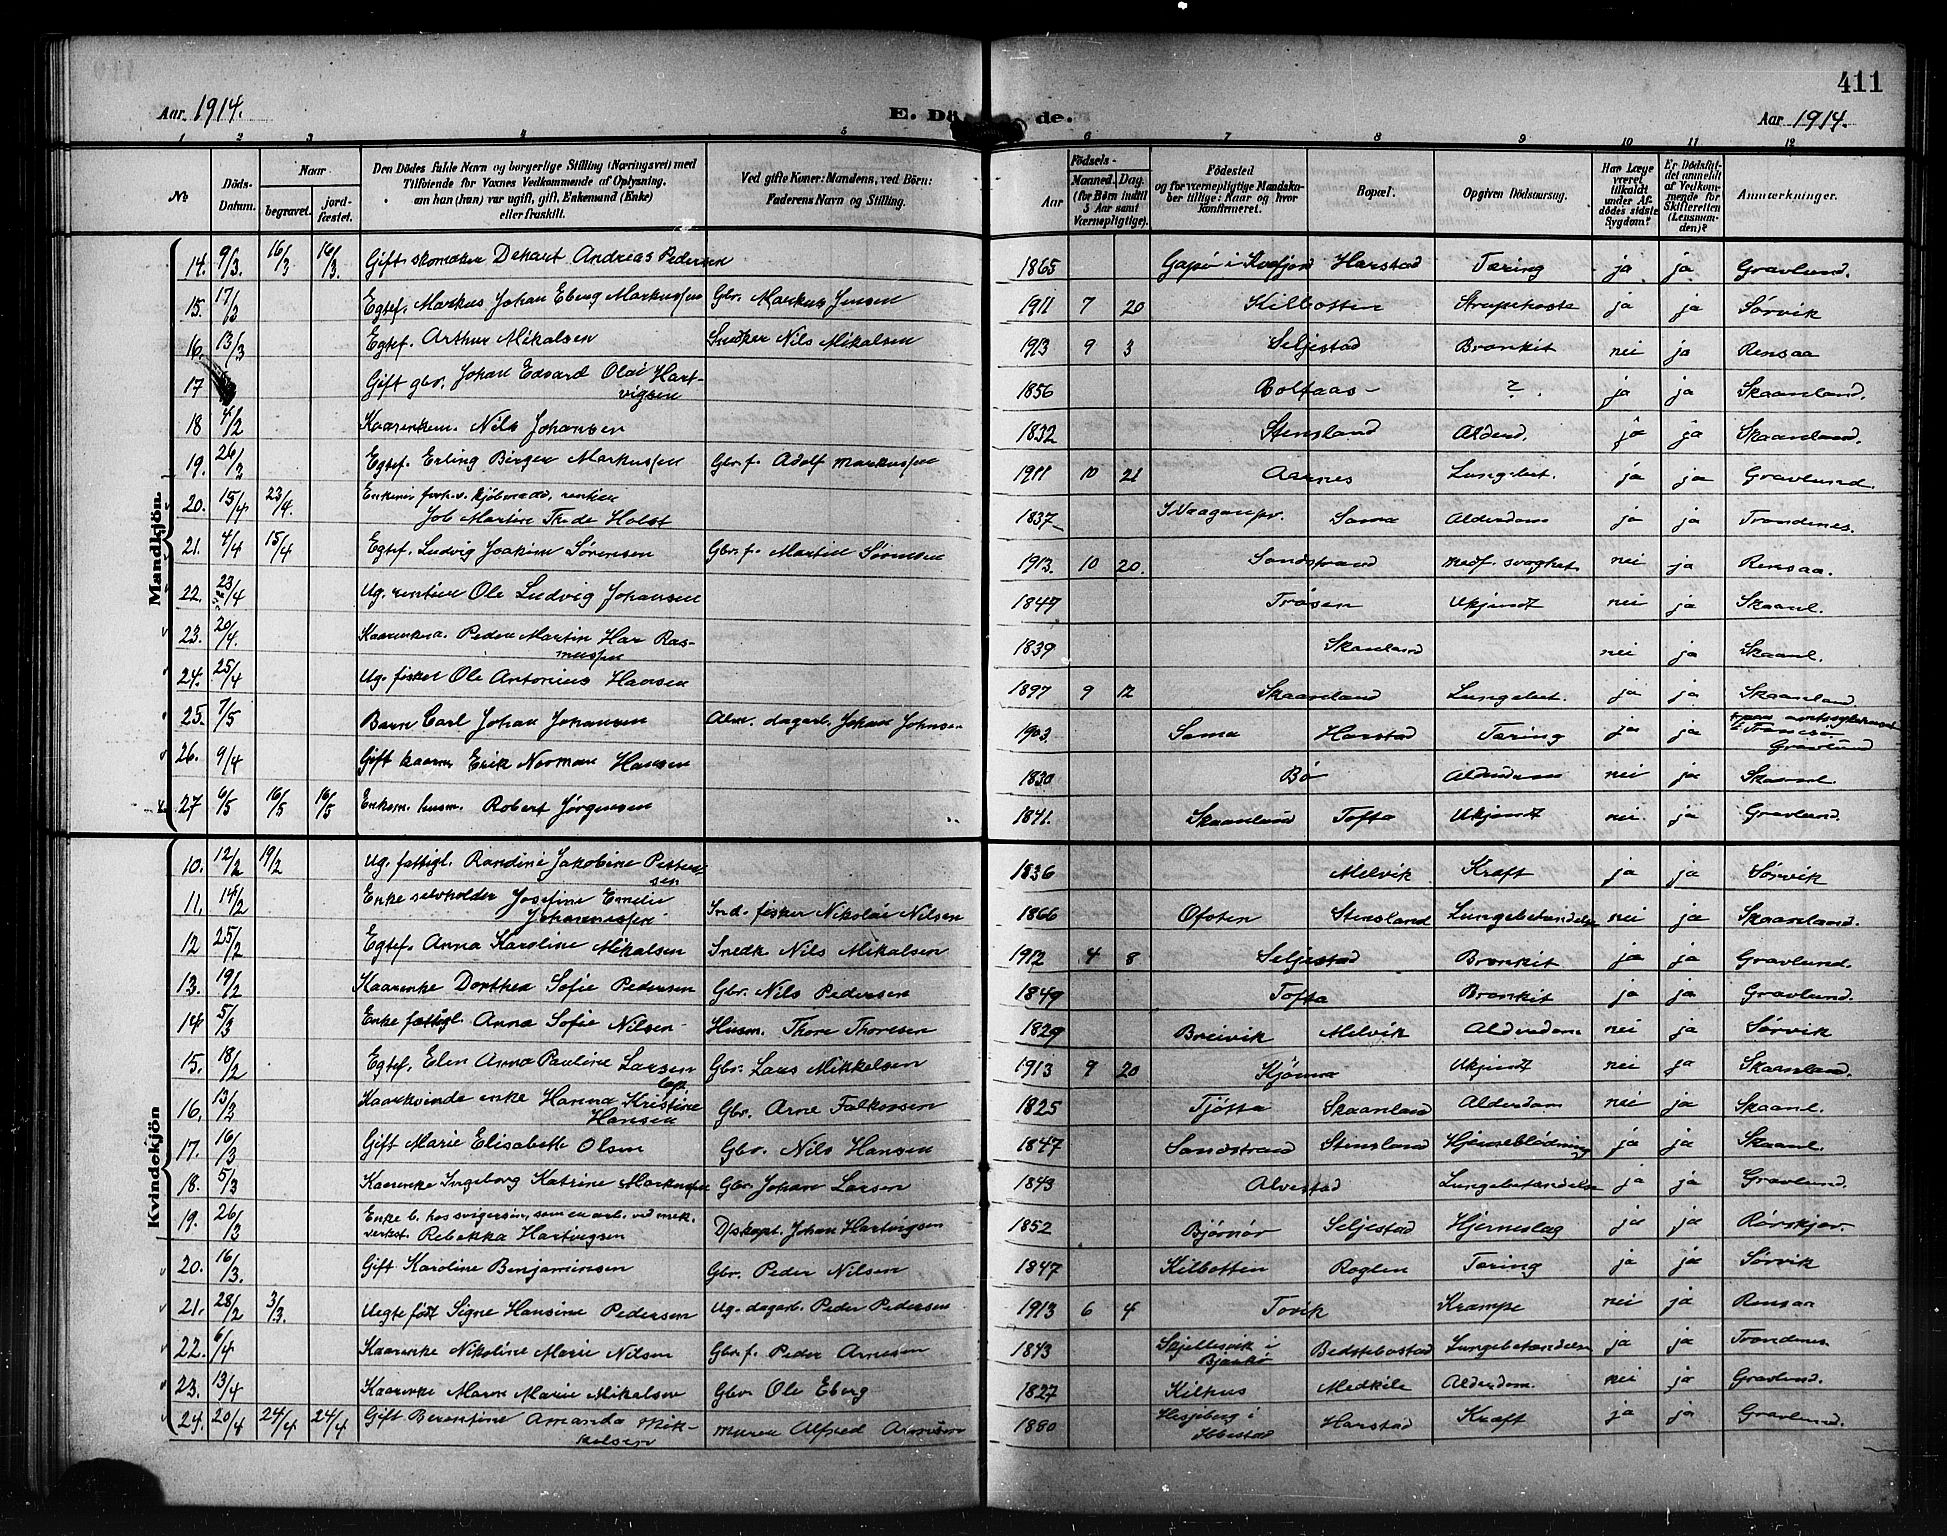 411
Aar 1914.
E. Dö de.
Aar 1914.
1 2 3 4 5 6 7 8 9 10 11 12
№
Döds-Datum.
Naar
begravet.
jord-fæstet.
Den Dödes fulde Navn og borgerlige Stilling (Næringsvei) med
Tilföiende for Voxnes Vedkommende af Oplysning,
om han (hun) var ugift, gift, Enkemand (Enke)
eller fraskilt.
Ved gifte Koner: Mandens, ved Börn:
Faderens Navn og Stilling.
Födsels-
Aar
Maaned. Dag.
(for Børn indtil
5 Aar samt
Værnepligtige).
Födested
og for værnepligtige Mandska-
ber tillige: Naar og hvor
Konfirmeret.
Bopæl.
Opgiven Dödsaarsag.
Har Læge
været
tilkaldt
under Af-
dödes sidste
Sygdom?
Er Dödsfal-
det anmeldt
af Vedkom-
mende for
Skifteretten
(Lensman-
den)?
Anmærkninger.
Mandkjön.
14. 9/3 16/3 16/3 Gift skomaker Dehart Andreas Pedersen 1865 Gapø i Kvæfjord Harstad Tæring ja ja Gravlund.
15. 17/3 Egtef. Markus Johan Eberg Markussen Gbr. Markus Jensen 1911 7 20 Kilbotten Strupehoste ja ja Sørvik
16. 13/3 Egtef. Arthur Mikalsen Snedker Nils Mikalsen 1913 9 3 Seljestad Bronkit nei ja Rensaa
17 Gift gbr. Johan Edvard Olai Hart-
vigsen 1856 Bolfaas ? ja ja Skaanland.
18 4/2 Kaarenkem. Nils Johansen 1832 Stensland Alderd. ja ja Skaanland.
19. 26/3 Egtef. Erling Birger Markussen Gbr. f. Adolf Markussen 1911 10 21 Aarnes Lungebet. ja ja Gravlund.
20. 15/4 23/4. Enkem. forh.v. kjøbmand, rentier
Job Martin Trede Holst 1837 Vaagan pr. Sama Alderdom ja ja Trondenes.
21. 4/4 15/4 Egtef. Ludvig Joakim Sørensen Gbr. f. Martin Sørensen 1913. 10 20. Sandstrand Medf. svaghet nei ja Rensaa.
22. 23/4 Ug. rentier Ole Ludvig Johansen 1847 Trøsen Ukjendt nei ja Skaanl.
23. 20/4. Kaarenkem. Peder Martin Har Ras-
mussen 1839 Skaanland nei ja Skaanl.
24. 25/4 Ug. fisker Ole Antonius Hansen 1897 9 12 Skaanland Lungebet. ja ja Skaanland
25. 7/5 Barn Carl Johan Johansen Alm. dagarb. Johan Johnsen 1903. Sama Harstad Tæring ja ja paa amtssykehuset
i Tromsø
Gravlund
26. 9/4 Gift kaarm. Erik Norman Hansen 1830 Bø Alderdom nei ja Skaanl.
27 6/5 16/5 16/5 Enkem. husm. Robert Jørgensen 1841. Skaanland Tofta Ukjendt nei ja Gravlund.
Kvindekjön
10. 12/2 19/2 Ug. fattigl. Randine Jakobine Peder-
sen 1836 Melvik Kræft ja ja Sørvik
11. 14/2 Enke selvholder Josefine Emelie
Johannessen Ind. fisker Nikolai Nilsen 1866 Ofoten Stensland Lungebetændelse nei ja Skaanland.
12 25/2 Egtef. Anna Karoline Mikalsen Snedk Nils Mikalsen 1912 4 8 Seljestad Bronkit ja ja Gravlund.
13. 19/2 Kaarenke Dorthea Sofie Pedersen Gbr. Nils Pedersen 1849 Tofta Bronkit ja ja Gravlund.
14 5/3 Enke fattigl. Anna Sofie Nilsen Husm. Thore Thoresen 1829 Breivik Melvik Alderdom nei ja Sørvik
15. 18/2 Egtef. Elen Anna Pauline Larsen Gbr. Lars Mikkelsen 1913 9 20 Kjønna Ukjendt nei ja Skaanland.
16. 13/3 Kaarkvinde enke Hanna Kristine
Hansen Gbr. Arne Falksen 1825 Tjøtta Skaanland Alderdom nei ja Skaanl.
17. 16/3 Gift Marie Elisabeth Olsen Gbr. Nils Hansen 1847 Sandstrand Stensland Hjerneblødning ja ja Skaanl.
18. 5/3 Kaarenke Ingeborg Katrine Markussen Gbr. Johan Larsen 1843 Alvestad Lungebetændelse ja ja Gravlund.
19. 26/3 Enke b. hos svigersøn, som er arb. ved mek.
verkst. Rebekka Hartvigsen D/skapt. Johan Hartvigsen 1852 Bjørnør Seljestad Hjerneslag ja ja Rørskjær.
20. 16/3. Gift Karoline Benjaminsen Gbr. Peder Nilsen 1847 Kilbotten Roglen Tæring ja ja Sørvik
21. 28/2 3/3. Uegte født Signe Hansine Pedersen Ug. dagarb. Peder Pedersen 1913 6 4 Tovik Krampe nei ja Rensaa
22. 6/4 Kaarenke Nikoline Marie Nilsen Gbr. f. Peder Arnesen 1843 Skjellesvik i
Bjarkø Bedstebostad Lungebetændelse ja ja Trondenes
23. 13/4 Kaarenke Maren Marie Mikalsen Gbr Ole Eberg 1827 Kilhus Medkile Alderdom. nei ja Gravlund.
24. 20/4 24/4 24/4 Gift Berentine Amanda Mik-
kelsen Murer Alfred Arnesen 1880 Hesjeberg i
Ibbestad Harstad Kræft ja ja Gravlund.